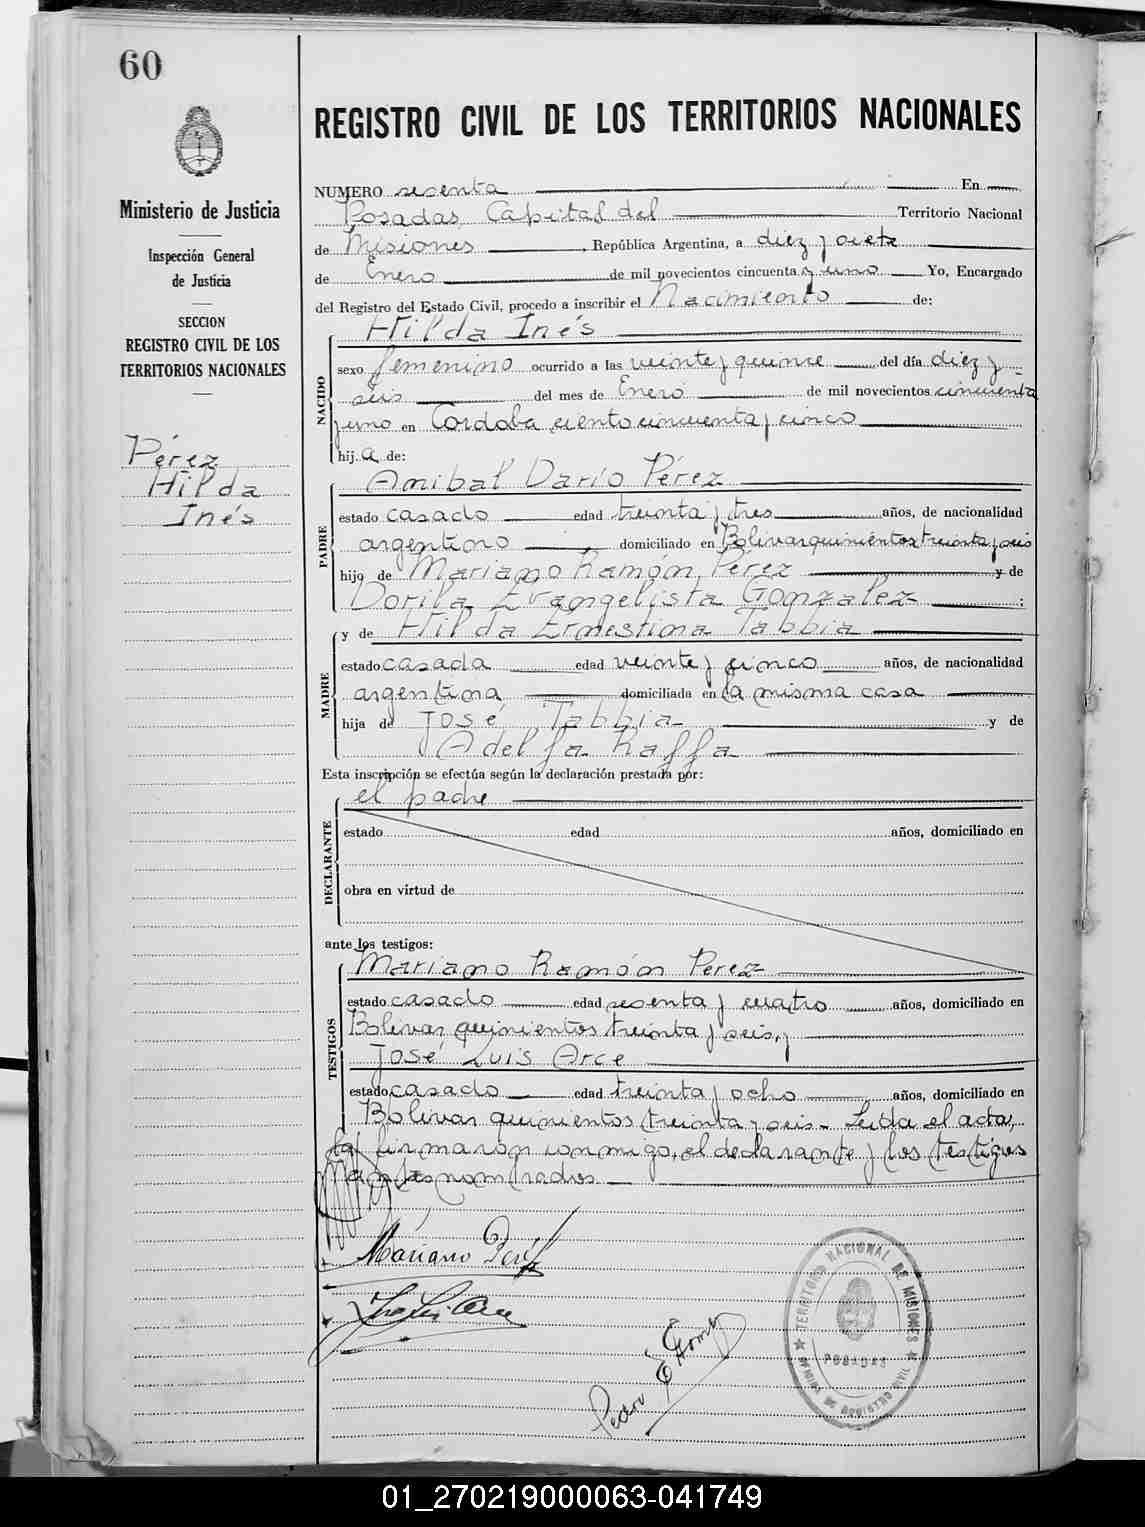 60
Ministerio de Justicia
Inspección General
de Justicia
SECCION
REGISTRO CIVIL DE LOS
TERRITORIOS NACIONALES
Pérez
Hilda
Inés
REGISTRO CIVIL DE LOS TERRITORIOS NACIONALES
NUMERO sesenta En
Posadas, Capital del Territorio Nacional
de Misiones, República Argentina, a diez y siete
de Enero de mil novecientos cincuenta y uno Yo, Encargado
del Registro del Estado Civil, procedo a inscribir el Nacimiento de:
Hilda Inés
NACIDO
sexo femenino ocurrido a las veinte y quince del día diez y
seis del mes de Enero de mil novecientos cincuenta
y uno en Córdoba ciento cincuenta y cinco
hija de:
Anibal Darío Pérez
PADRE
estado casado edad treinta y tres años, de nacionalidad
argentino, domiciliado en Bolivar quinientos treinta y seis
hijo de Mariano Ramón Pérez y de
Dorila Evangelista González;
y de Hilda Ernestina Tabbia
MADRE
estado casada edad veinte y cinco años, de nacionalidad
argentina domiciliada en la misma casa
hija de José Tabbia y de
Adelfa Raffa
Esta inscripción se efectúa según la declaración prestada por:
el padre
DECLARANTE
estado edad años, domiciliado en
obra en virtud de
ante los testigos:
Mariano Ramón Perez
TESTIGOS
estado casado edad sesenta y cuatro años, domiciliado en
Bolivar quinientos treinta y seis, y
José Luis Arce
estado casado edad treinta y ocho años, domiciliado en
Bolivar quinientos treinta y seis - Leída el acta,
la firmaron conmigo, el declarante y los testigos
antes nombrados.
Mariano Pérez
Pedro E
TERRITORIO NACIONAL DE MISIONES
POSADAS
OFICINA DE REGISTRO CIVIL
01_270219000063-041749